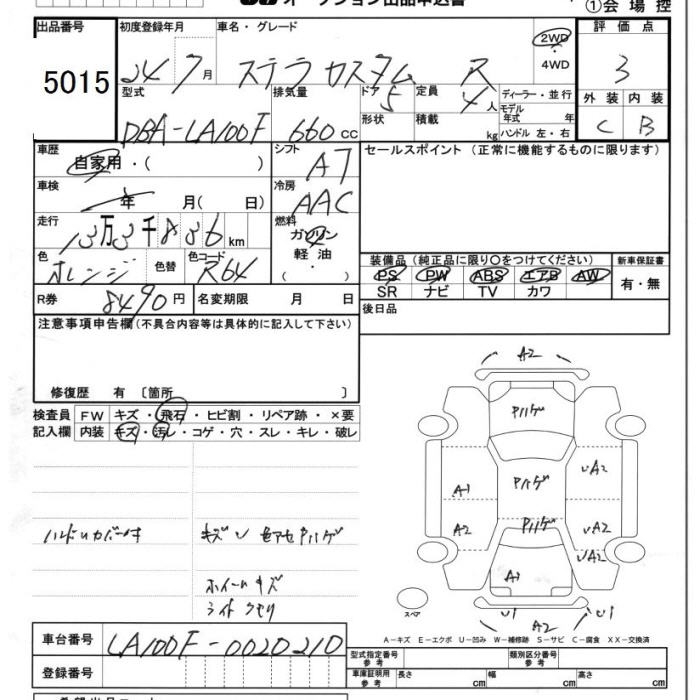 オークション出品申込書
①会場控
出品番号 初度登録年月 車名・グレード 評価点
5015 24 7月 ステラ カスタム R 2WD 4WD 3
型式 排気量 ドア 定員 ディーラー・並行 外装 内装
DBA-LA100F 660cc 5 4人 モデル年式 年 C B
形状 積載 kg ハンドル 左・右
車歴 シフト セールスポイント (正常に機能するものに限ります)
自家用・( ) AT
車検 年 月( 日) 冷房 AAC
走行 13万3千836km 燃料 ガソリン 軽油 ( ・ )
色 オレンジ 色替 色コード R64
装備品 (純正品に限り〇をつけてください) 新車保証書
PS PW ABS エアB AW 有・無
SR ナビ TV カワ
R券 8490円 名変期限 月 日
後日品
注意事項申告欄(不具合内容等は具体的に記入して下さい)
修復歴 有 〔箇所 〕
検査員 FW キズ・飛石・ヒビ割・リペア跡・×要
記入欄 内装 キズ・汚レ・コゲ・穴・スレ・キレ・破レ
ハンドルカバー付
キズU 色アセ Pハゲ
ホイールキズ
ライトクモリ
A2
Pハゲ
Pハゲ
UA2
A1
Pハゲ
A2
UA2
UA2
A3
スペア
U1
A2
U1
A-キズ E-エクボ U-凹み W-補修跡 S-サビ C-腐食 XX-交換済
車台番号 LA100F-0020210
型式指定番号 参考 類別区分番号 参考
登録番号
車庫証明用 参考 長さ cm 幅 cm 高さ cm